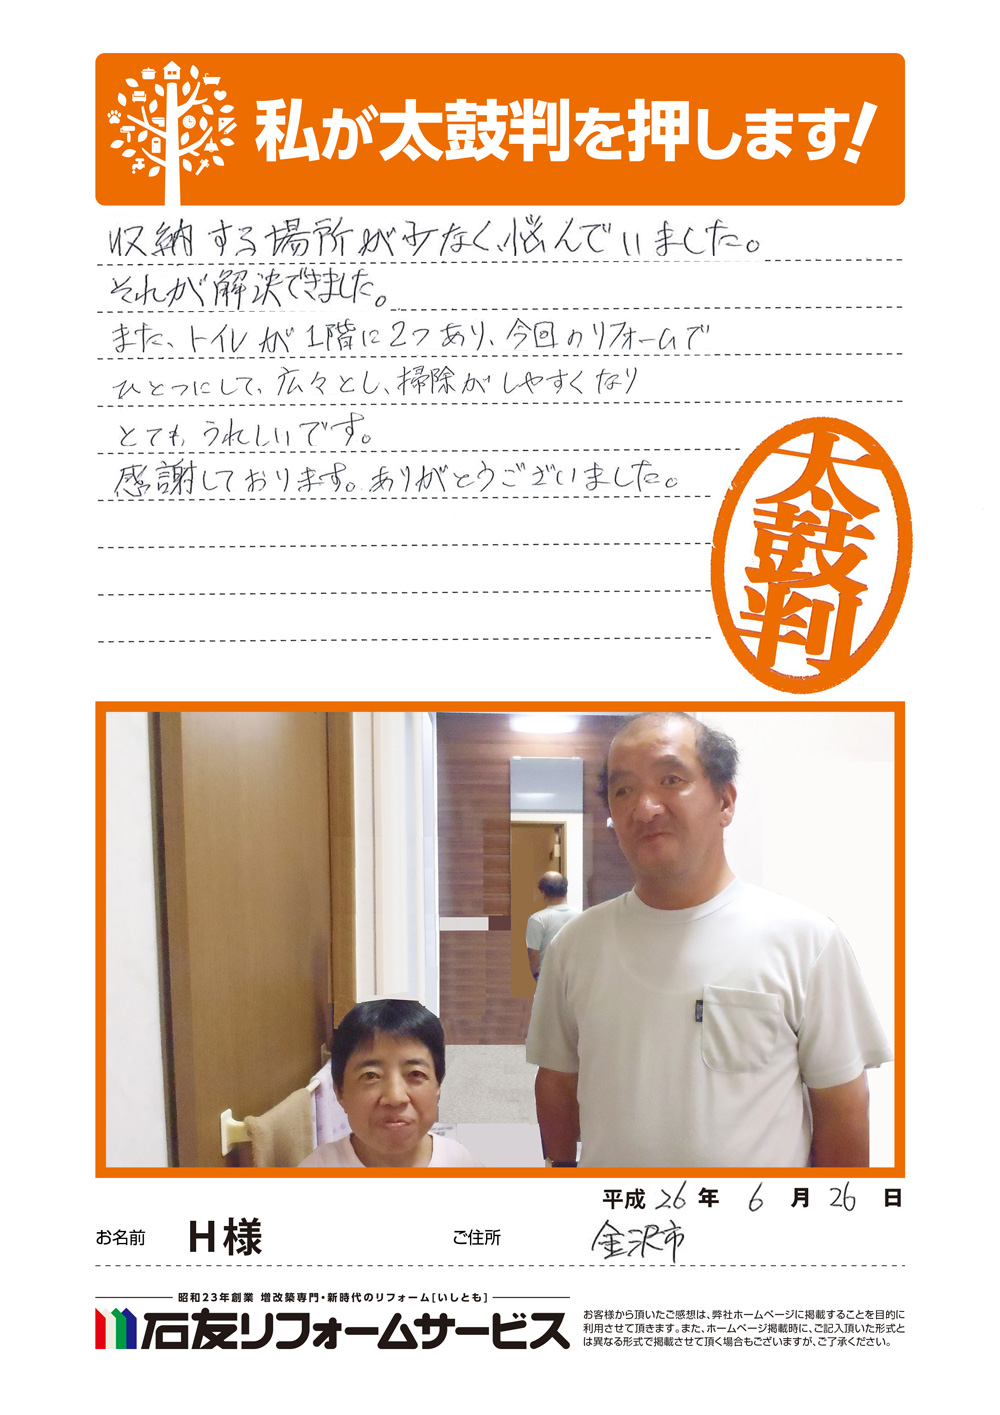 私が太鼓判を押します!
収納する場所が少なく、悩んでいました。
それが解決できました。
また、トイレが1階に2つあり、今回のリフォームで
ひとつにして、広々とし、掃除がしやすくなり
とてもうれしいです。
感謝しております。ありがとうございました。
太鼓判
平成26年 6月26日
お名前 H様 ご住所 金沢市
昭和23年創業 増改築専門・新時代のリフォーム[いしとも]
石友リフォームサービス
お客様から頂いたご感想は、弊社ホームページに掲載することを目的に
利用させて頂きます。また、ホームページ掲載時に、ご記入頂いた形式と
は異なる形式で掲載させて頂く場合もございますが、ご了承ください。